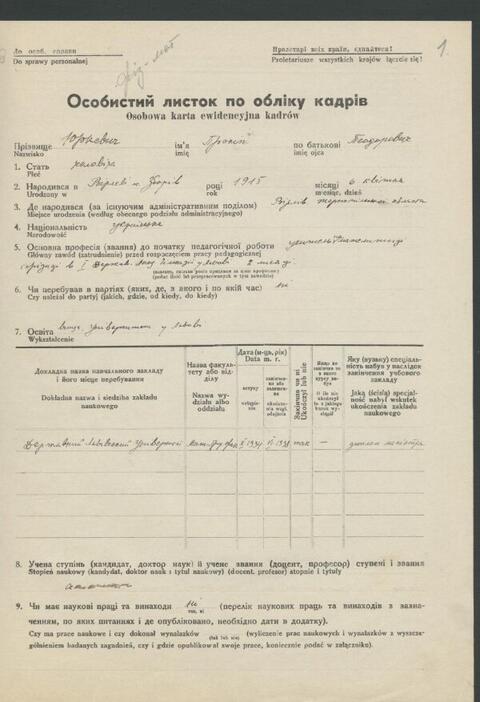 До особ. справи
Do sprawy personalnej
физ-мат
Пролетарі всіх країн, єднайтеся!
Proletariusze wszystkich krajów łączcie się!
1.
Особистий листок по обліку кадрів
Osobowa karta ewidencyjna kadrów
Прізвище Юркевич ім'я по батькові Теодорович
Nazwisko imię imię ojca
1. Стать чоловіча
Płeć
2. Народився в році 1915 місяці 6 квітня
Urodzony w roku miesiąc, dzień
3. Де народився (за існуючим адміністративним поділом)
Miejsce urodzenia (według obecnego podziału administracyjnego)
4. Національність українець
Narodowość
5. Основна професія (звання) до початку педагогічної роботи
Główny zawód (zatrudnienie) przed rozpoczęciem pracy pedagogicznej
у Львові 2 місяці
(podać ilość lat przepracowanych w tym zawodzie)
6. Чи перебував в партіях (яких, де, з якого і по якій час) ні
Czy należał do partyj (jakich, gdzie, od kiedy, do kiedy)
7. Освіта вища. Університет у Львові
Wykształcenie
Докладна назва навчального закладу і його місце перебування
Dokładna nazwa i siedziba zakładu naukowego
Назва факультету або відділу
Nazwa wydziału albo oddziału
Дата (м-ць, рік)
Data m. r.
вступу
wstąpienia
закінчення або залишення
ukończenia wzgl. odejścia
Закінчив чи ні
Ukończył lub nie
Якщо не закінчив то з якого курсу вибув
O ile nie ukończył to z jakiego kursu wystąpił
Яку (вузьку) спеціальність набув у наслідок закінчення учбового закладу
Jaką (ścisłą) specjalność nabył wskutek ukończenia zakładu naukowego
Державний Львівський Університет так — диплом магістра
8. Учена ступінь (кандидат, доктор наук) й учене звання (доцент, професор) ступені і звання
Stopień naukowy (kandydat, doktor nauk i tytuł naukowy) (docent, profesor) stopnie i tytuły
9. Чи має наукові праці та винаходи ні (перелік наукових праць та винаходів з зазначенням, по яких питаннях і де опубліковано, необхідно дати в додатку).
так, ні
Czy ma prace naukowe i czy dokonał wynalazków (tak lub nie) (wyliczenie prac naukowych i wynalazków z wyszczególnieniem badanych zagadnień, czy i gdzie opublikował swoje prace, koniecznie podać w załączniku).